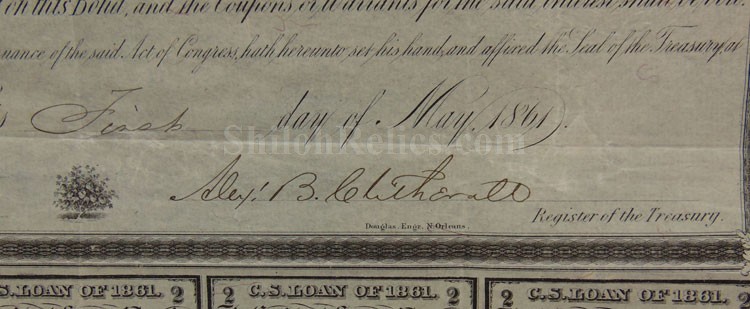 on this Bond, and the Coupons or Warrants for the said interest shall be
uance of the said Act of Congress, hath hereunto set his hand, and affixed the Seal of the Treasury, at
First day of May, 1861).
ShilohRelics.com
Alex. B. Clitherall
Register of the Treasury.
Douglas Engr. N. Orleans.
C.S. LOAN OF 1861. 2
2 C.S. LOAN OF 1861. 2
2 C.S. LOAN OF 1861. 2